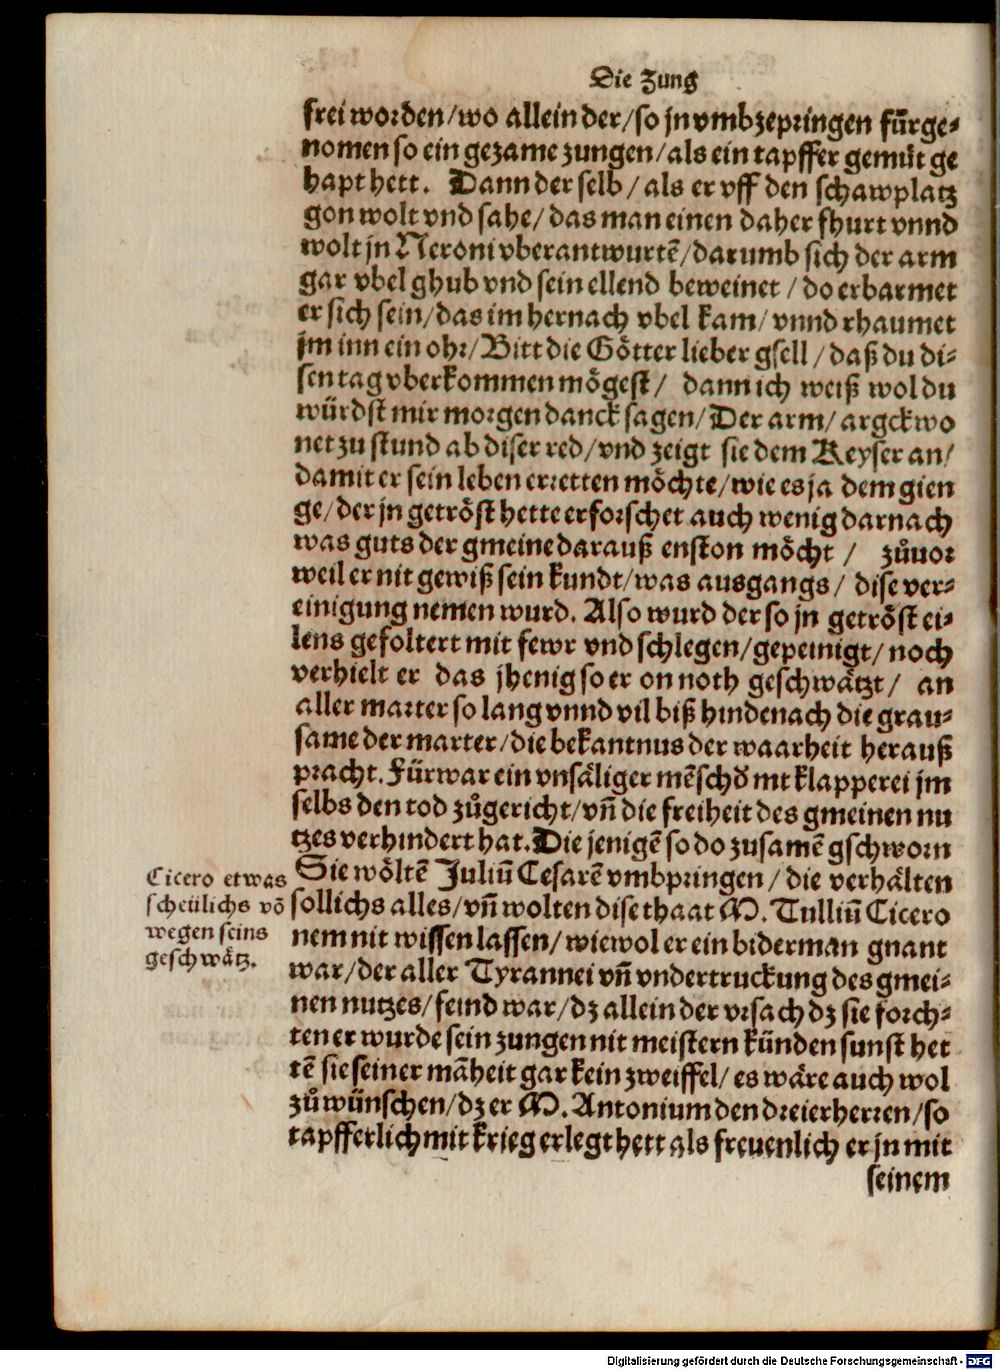 Die Zung
frei worden/wo allein der/so jn vmbzepringen fürge-
nomen so ein gezame zungen/als ein tapffer gemüt ge
hapt hett. Dann der selb/als er vff den schawplatz
gon wolt vnd sahe/das man einen daher fhurt vnnd
wolt jn Neroni vberantwurtē/darumb sich der arm
gar vbel ghub vnd sein ellend beweinet/do erbarmet
er sich sein/das im hernach vbel kam/vnnd rhaumet
jm inn ein ohr/Bitt die Götter lieber gsell/daß du di-
sen tag vberkommen mögest/ dann ich weiß wol du
würdst mir morgen danck sagen/Der arm/argckwo
net zu stund ab diser red/vnd zeigt sie dem Keyser an/
damit er sein leben erretten möchte/wie es ja dem gien
ge/der jn getröst hette erforschet auch wenig darnach
was guts der gmeine darauß enston möcht/ zůuor
weil er nit gewiß sein kundt/was ausgangs/dise ver-
einigung nemen wurd. Also wurd der so jn getröst ei-
lens gefoltert mit fewr vnd schlegen/gepeinigt/noch
verhielt er das jhenig so er on noth geschwätzt/ an
aller marter so lang vnnd vil biß hindenach die grau-
same der marter/die bekantnus der waarheit herauß
pracht. Fürwar ein vnsäliger mēsch d̄ mt klapperei jm
selbs den tod zůgericht/vn̄ die freiheit des gmeinen nu
tzes verhindert hat. Die jenigē so do zusamē gschworn
Sie wöltē Juliū Cesarē vmbpringen/die verhälten
sollichs alles/vn̄ wolten dise thaat M. Tulliū Cicero
nem nit wissen lassen/wiewol er ein biderman gnant
war/der aller Tyrannei vn̄ vndertruckung des gmei-
nen nutzes/feind war/dz allein der vrsach dz sie forch-
ten er wurde sein zungen nit meistern künden sunst het
tē sie seiner māheit gar kein zweiffel/es wäre auch wol
zů wünschen/dz er M. Antonium den dreierherren/so
tapfferlich mit krieg erlegt hett als freuenlich er jn mit
seinem
Cicero etwas
scheülichs vō
wegen seins
geschwätz.
Digitalisierung gefördert durch die Deutsche Forschungsgemeinschaft - DFG